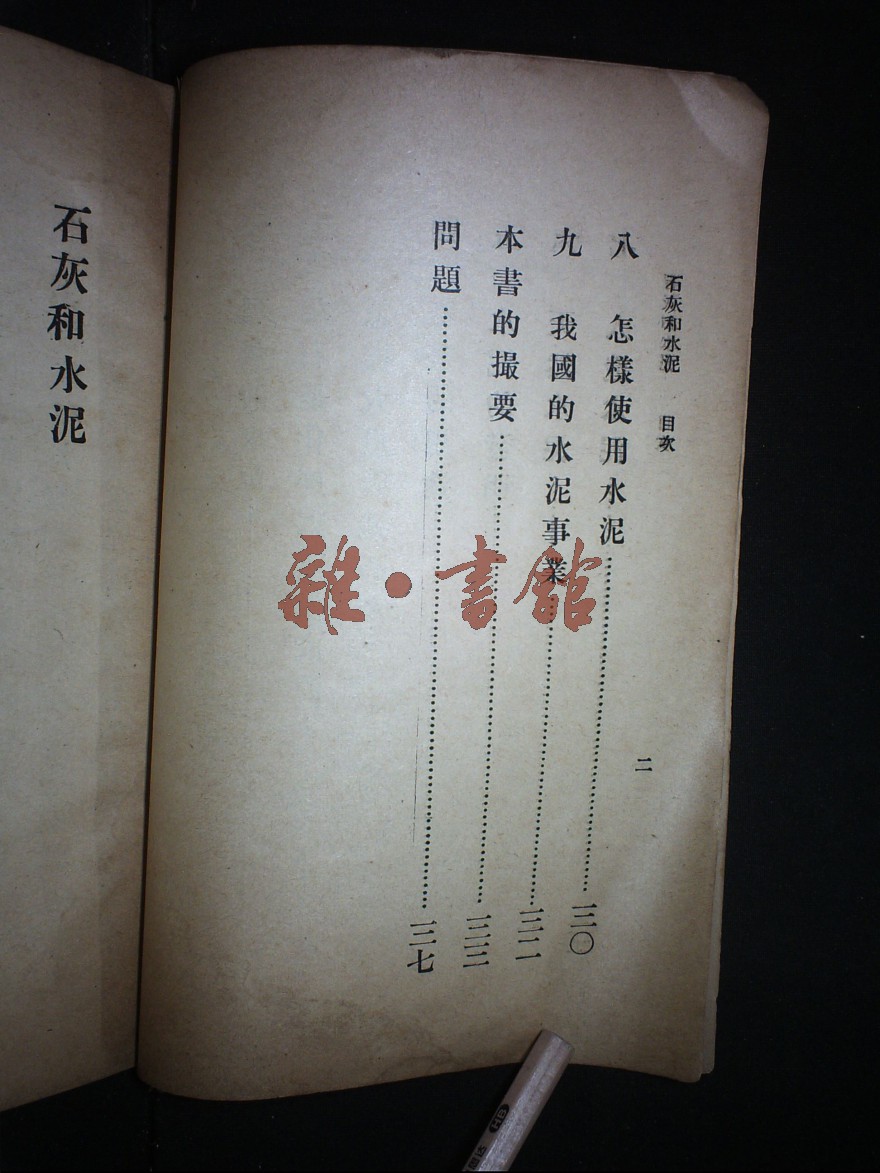 石灰和水泥 目次
二
八 怎樣使用水泥……三〇
九 我國的水泥事業……三二
本書的撮要……三三
問題……三七
石灰和水泥
雜·書館
HB